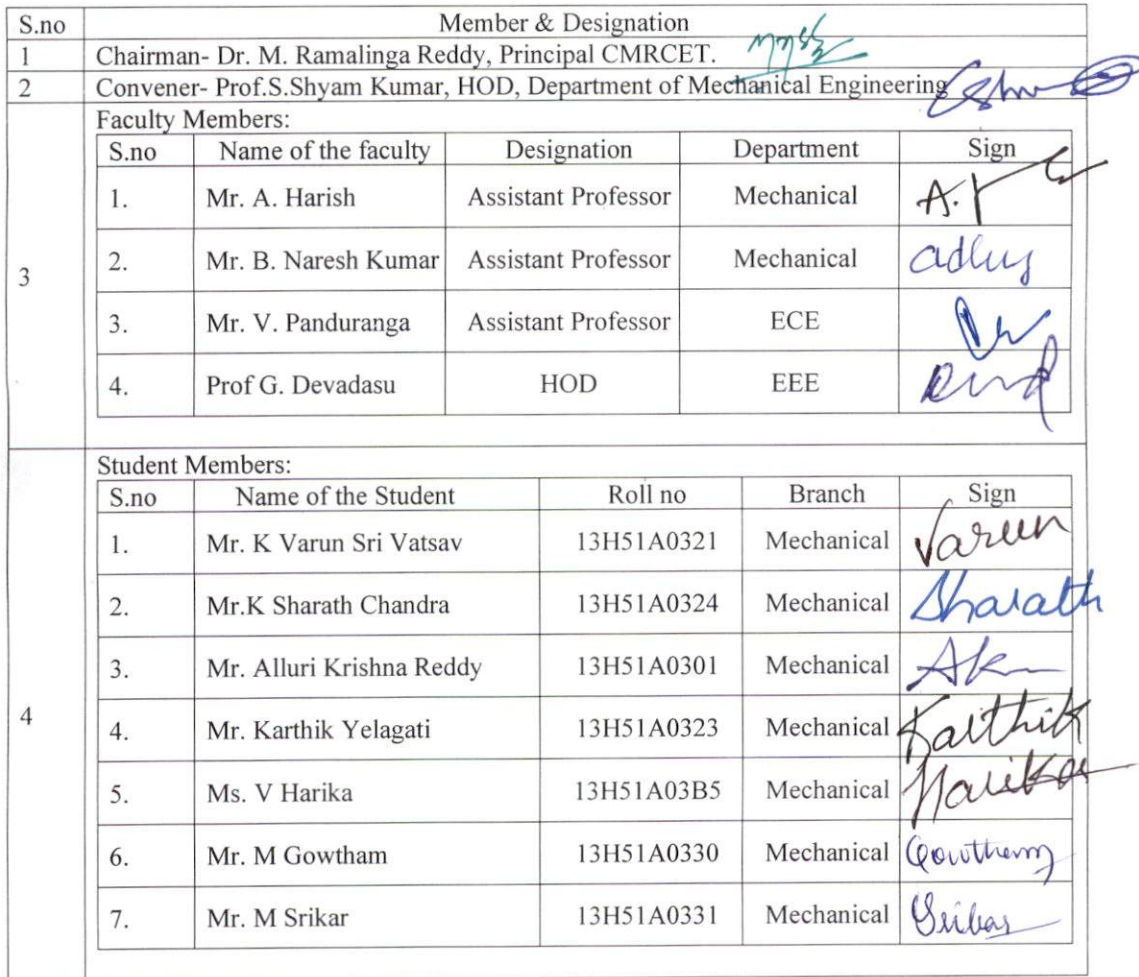 S.no Member & Designation
1 Chairman- Dr. M. Ramalinga Reddy, Principal CMRCET.
2 Convener- Prof.S.Shyam Kumar, HOD, Department of Mechanical Engineering
3 Faculty Members:
S.no Name of the faculty Designation Department Sign
1. Mr. A. Harish Assistant Professor Mechanical
2. Mr. B. Naresh Kumar Assistant Professor Mechanical
3. Mr. V. Panduranga Assistant Professor ECE
4. Prof G. Devadasu HOD EEE
4 Student Members:
S.no Name of the Student Roll no Branch Sign
1. Mr. K Varun Sri Vatsav 13H51A0321 Mechanical Varun
2. Mr.K Sharath Chandra 13H51A0324 Mechanical Sharath
3. Mr. Alluri Krishna Reddy 13H51A0301 Mechanical
4. Mr. Karthik Yelagati 13H51A0323 Mechanical Karthik
5. Ms. V Harika 13H51A03B5 Mechanical Harika
6. Mr. M Gowtham 13H51A0330 Mechanical
7. Mr. M Srikar 13H51A0331 Mechanical